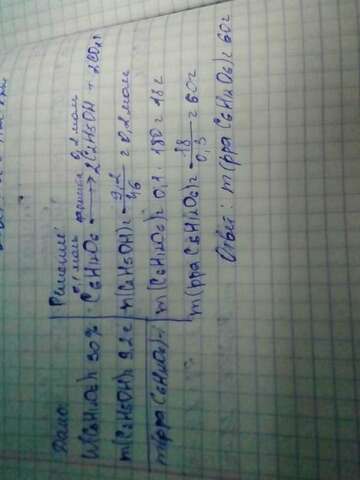 Дано:
W(C6H12O6)=30%
m(C2H5OH)=9,2г
m(р-ра C6H12O6)-?
Решение:
0,1 моль глюкоза 0,2 моль
C6H12O6 ⟶ 2C2H5OH + 2CO2↑
n(C2H5OH)= 9,2/46 = 0,2 моль
m(C6H12O6)= 0,1 · 180 = 18г
m(рра C6H12O6)= 18/0,3 = 60г
Ответ: m(рра C6H12O6)= 60г